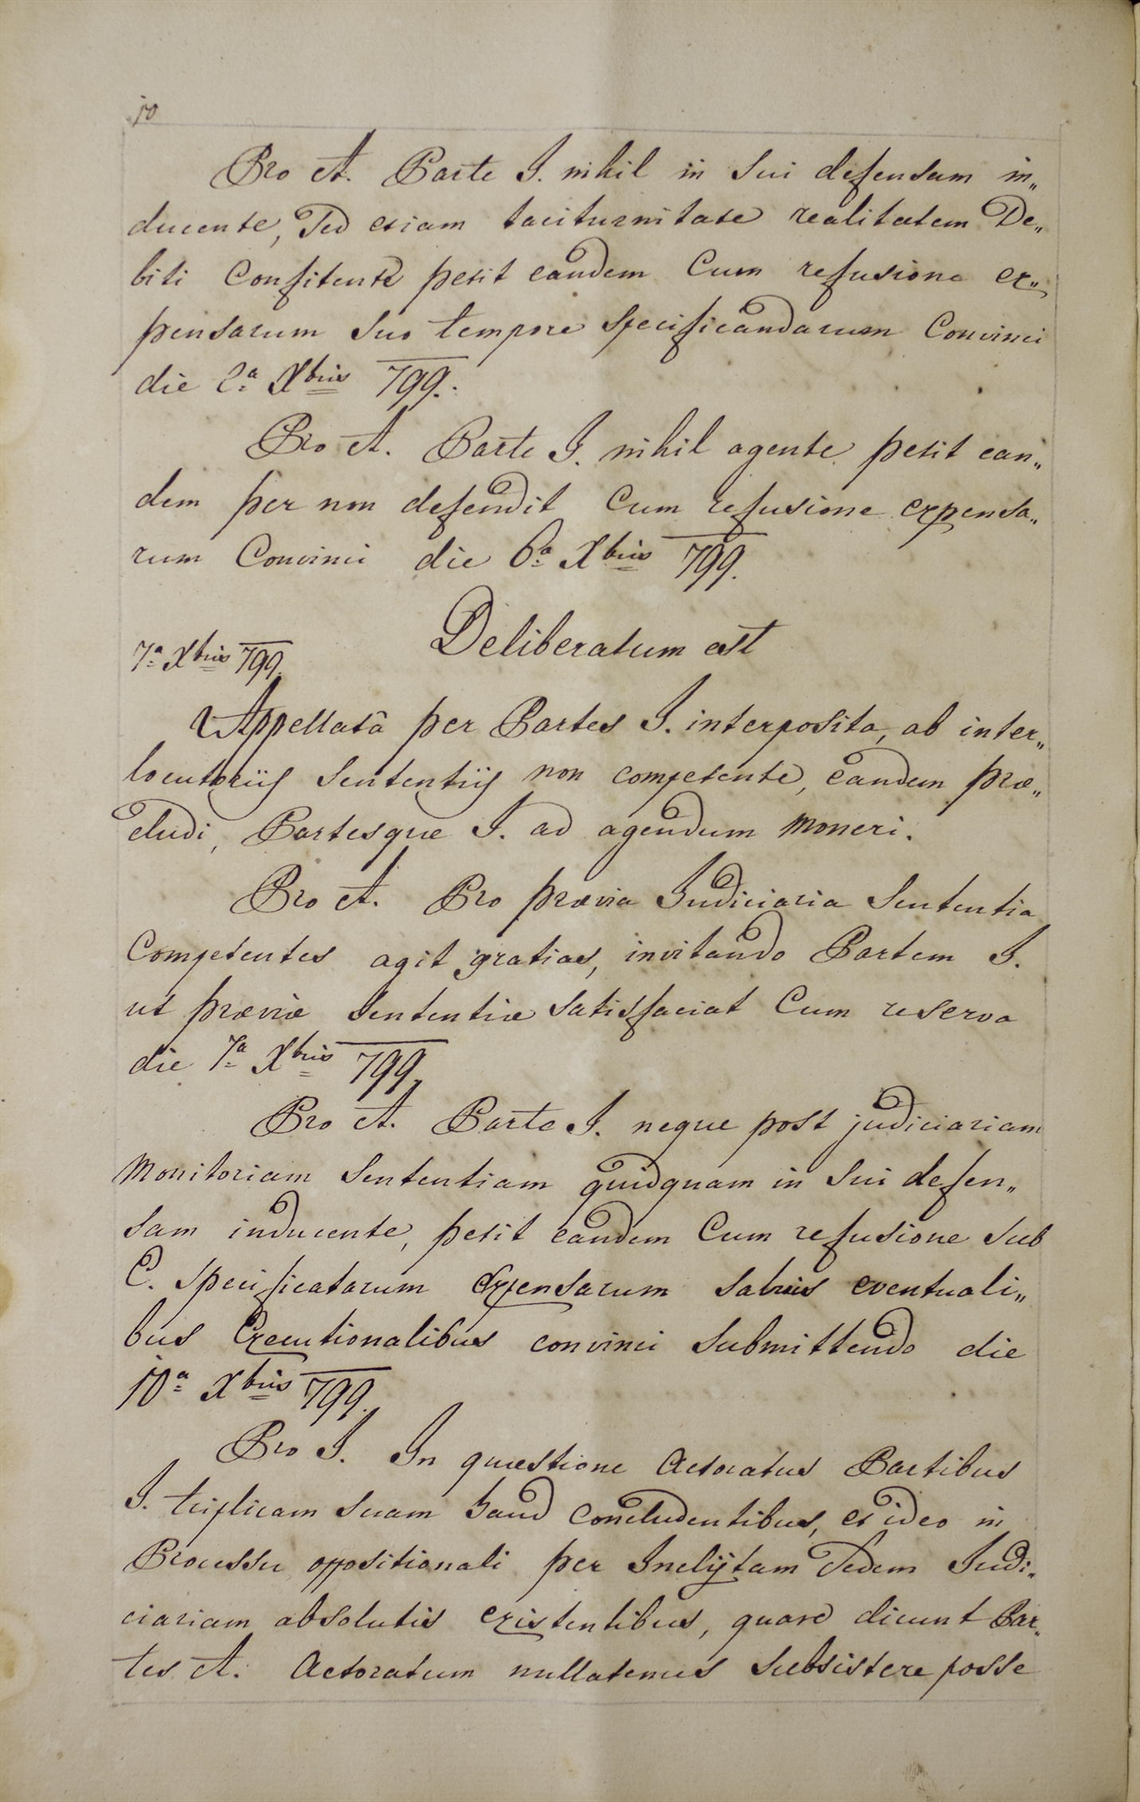 10
Pro A. Parte I. nihil in sui defensam in„
ducente, sed etiam taciturnitate realitatem De„
biti Confitente petit eandem Cum refusione ex„
pensarum suo tempore specificandarum Convinci
die 2ª Xbris 799.
Pro A. Parte I. nihil agente petit ean„
dem per non defendit Cum refusione expensa„
rum Convinci die 6ª Xbris 799.
Deliberatum est
7ª Xbris 799.
Appellatâ per Partes I. interposita, ab inter„
locutoriis Sententiis non competente, eandem præ„
cludi, Partesque I. ad agendum Moneri.
Pro A. Pro prævia Judiciaria Sententia
Competentes agit gratias, invitando Partem I.
ut præviæ Sententiæ satisfaciat Cum reserva
die 7ª Xbris 799.
Pro A. Parte I. neque post judiciariam
Monitoriam Sententiam quidquam in Sui defen„
sam inducente, petit eandem Cum refusione sub
C. specificatarum Expensarum salvis eventuali„
bus Executionalibus convinci submittendo die
10ª Xbris 799.
Pro I. In quæstione Actoratus Partibus
I. triplicam suam haud concludentibus, et ideo in
Processu oppositionali per Inclÿtam Sedem Judi„
ciariam absolutis existentibus, quare dicunt Par„
tes A. Actoratum nullatenus subsistere posse